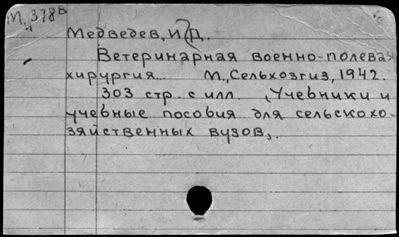 М, 378в
Медведев, И.Д.
Ветеринарная военно-полевая
хирургия... М., Сельхозгиз, 1942.
303 стр. с илл. „Учебники и
учебные пособия для сельскохо-
зяйственных вузов„.